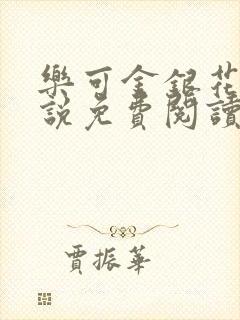 樂可金銀花
說免費閱讀
賈振華